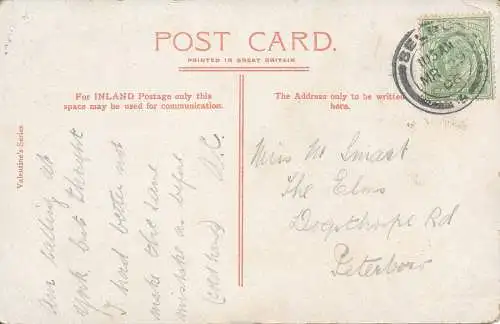 POST CARD.
PRINTED IN GREAT BRITAIN
For INLAND Postage only this
space may be used for communication.
The Address only to be written
here.
Valentine's Series
Am calling at
York but thought
I had better not
make the same
mistake as before
(cold hand) A.C.
Miss M Smart
The Elms
Dogsthorpe Rd
Peterboro